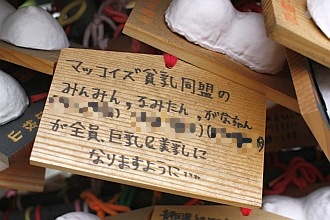 マッコイズ貧乳同盟の
みんみん,るみたん,がなちゃん
が全員、巨乳&美乳に
なりますように…